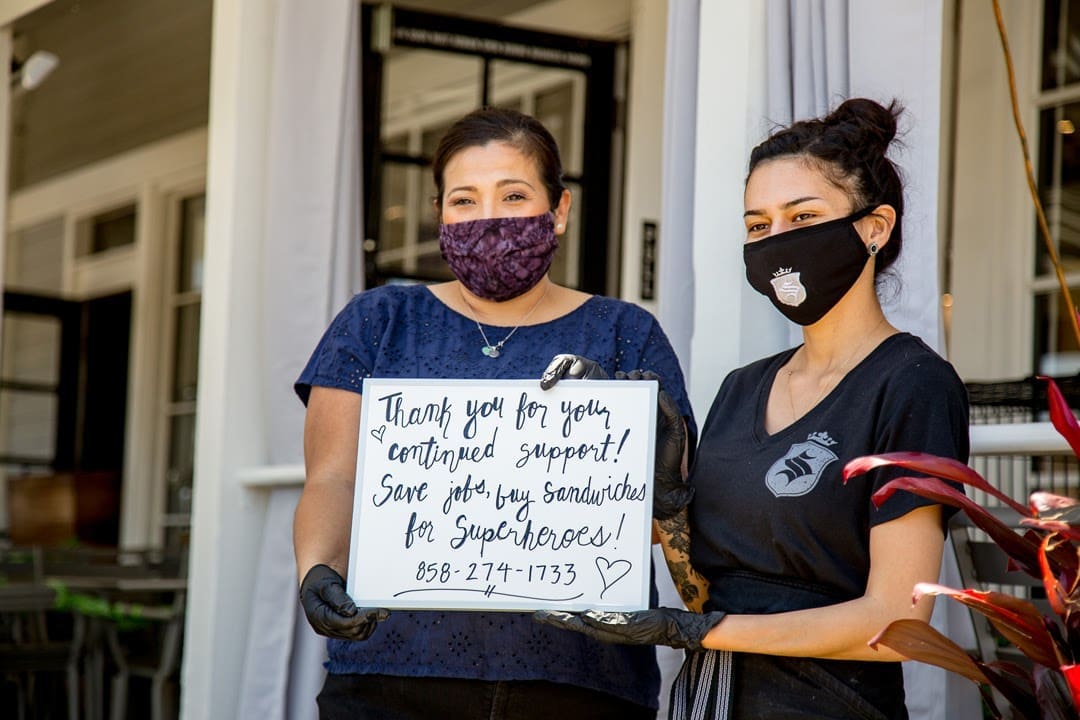 Thank you for your
continued support!
Save jobs, buy sandwiches
for Superheroes!
858-274-1733
S
S